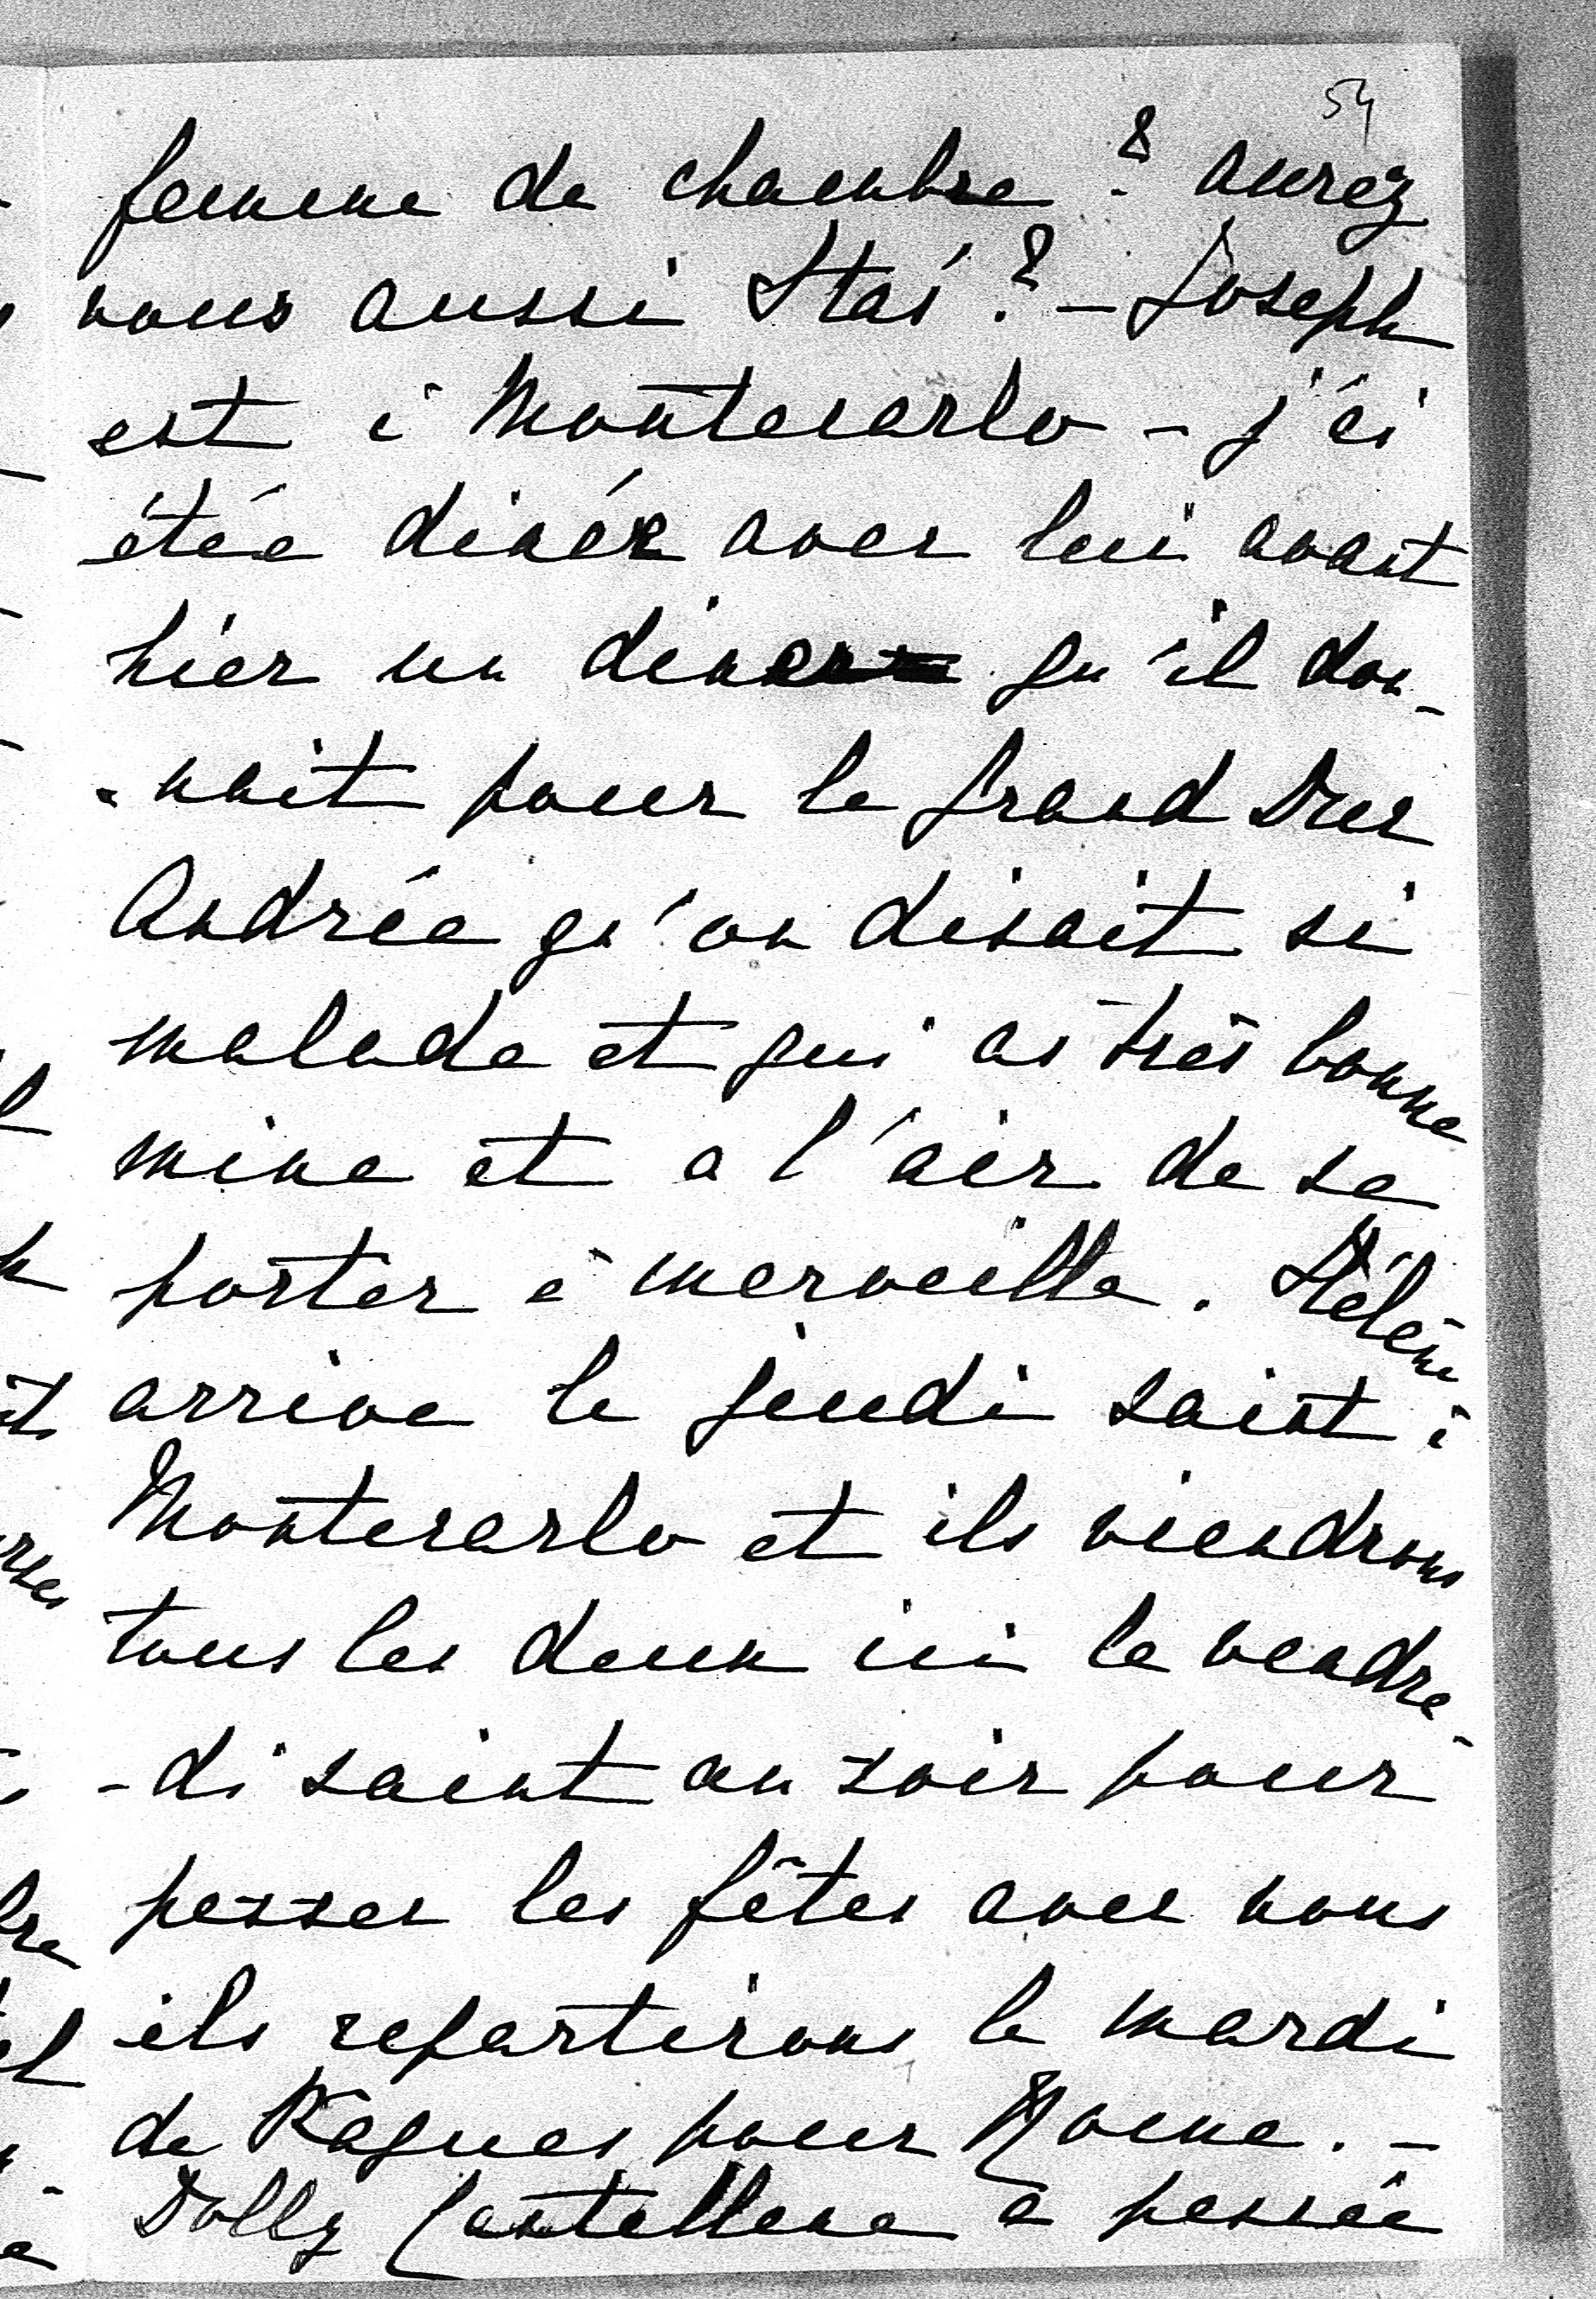 54
femme de chambre? aurez
vous aussi Staś? – Joseph
est à Montecarlo – j'ai
étée diner avec lui avant
hier un diner qu'il don-
-nait pour le grand Duc
Andrée qu'on disait si
malade et qui as très bonne
mine et a l'air de se
porter à merveille. Hélène
arrive le jeudi saint à
Montecarlo et ils viendrons
tous les deux ici le vendre-
-di saint au soir pour
passer les fêtes avec nous
ils repartirons le mardi
de Paques pour Rome. –
Dolly Castellane a passée